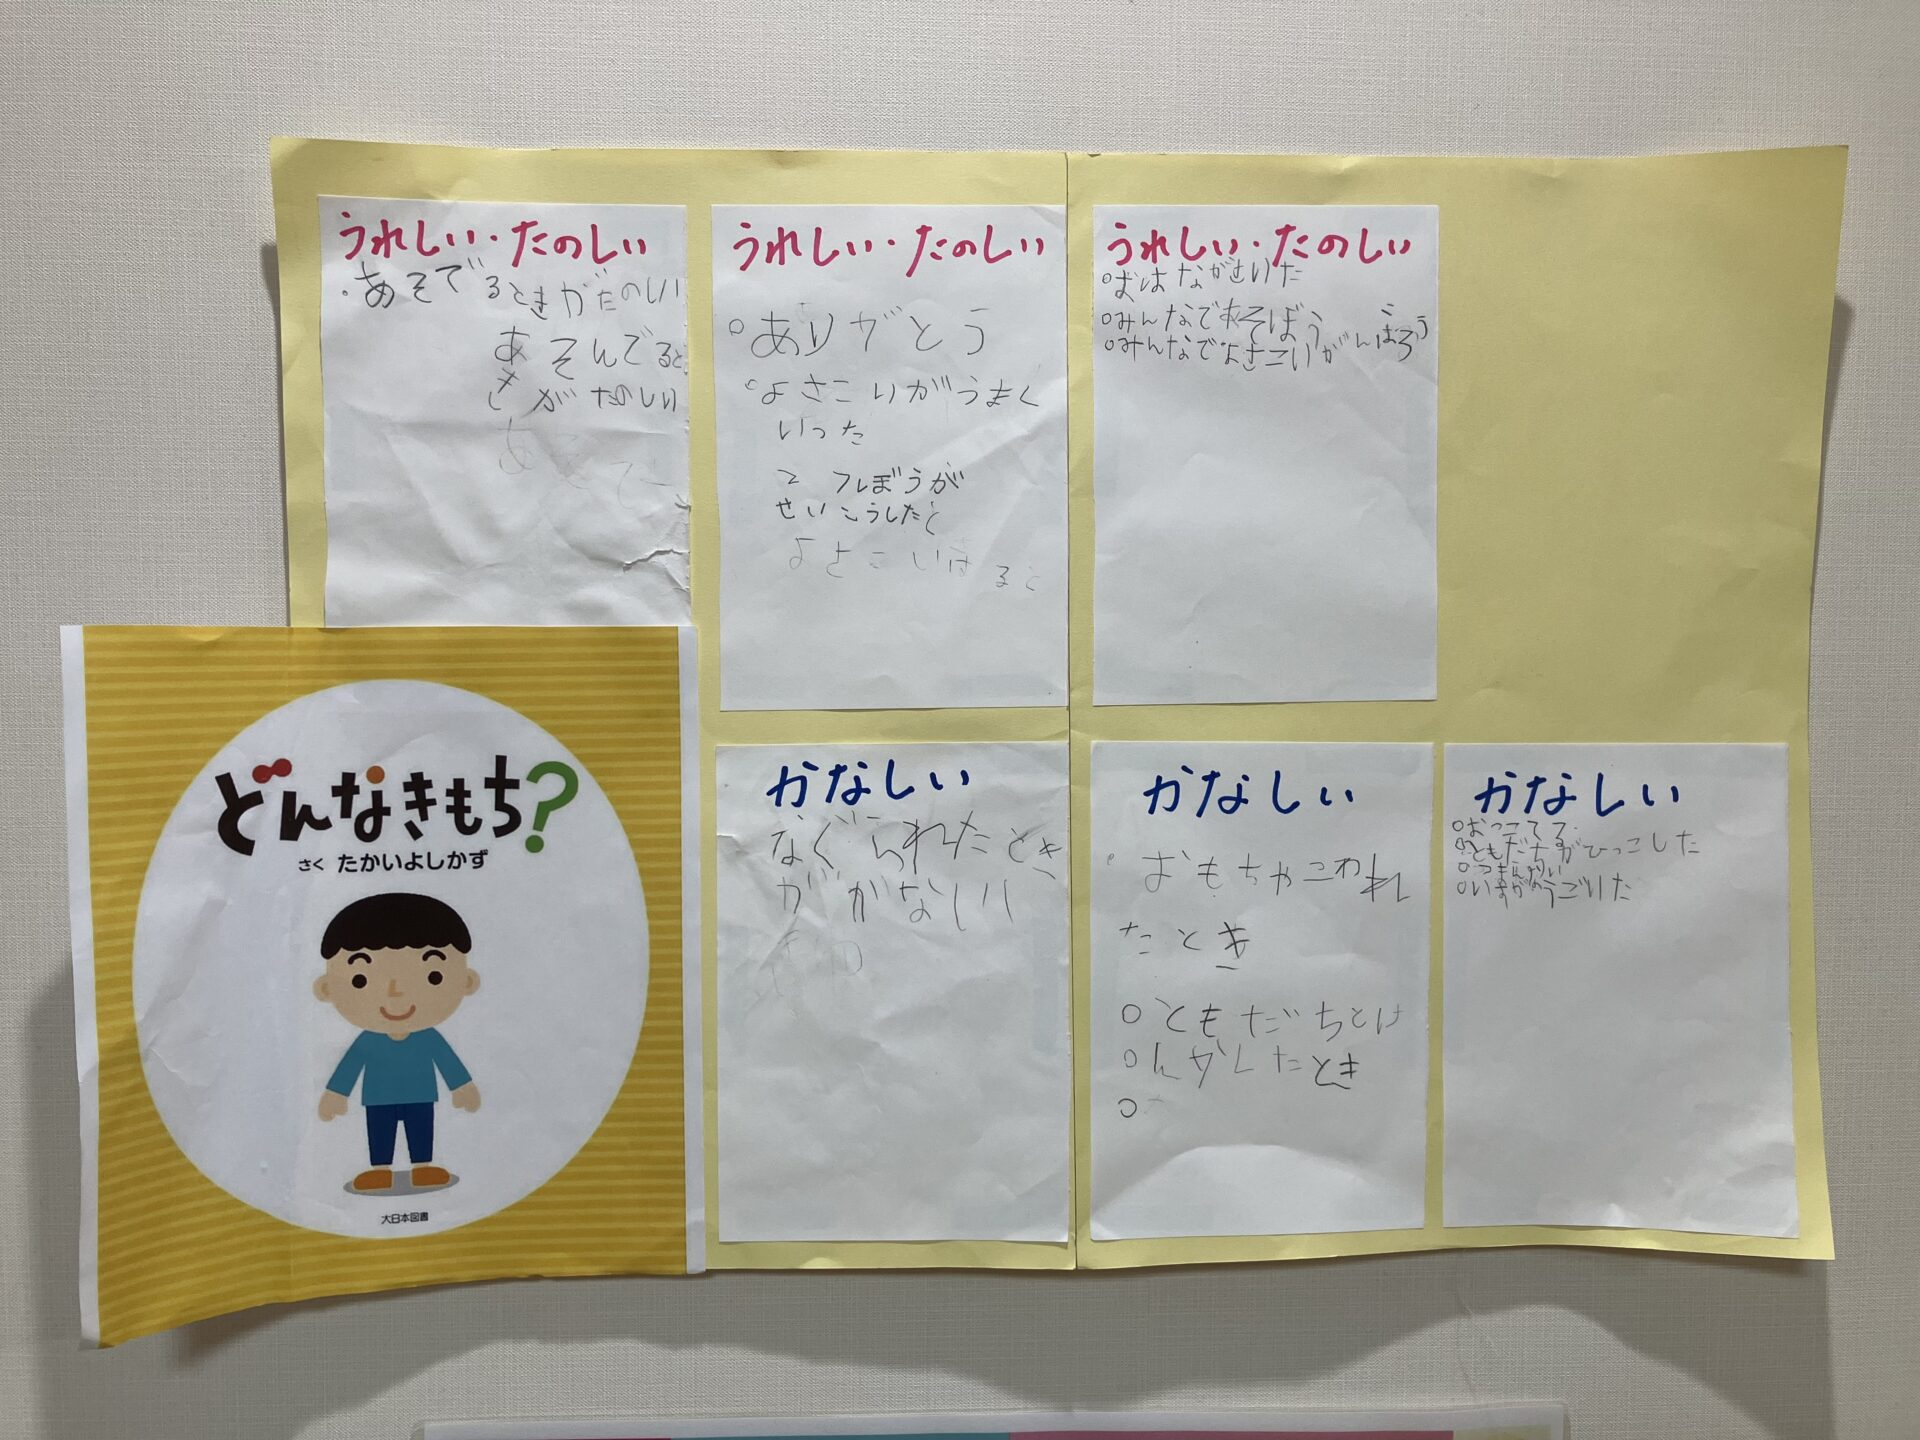 うれしい・たのしい
・あそでるときがたのしい
あそんでると
きがたのしい
うれしい・たのしい
○ありがとう
○よさこいがうまく
いった
てつぼうが
せいこうしたと
よさこい
うれしい・たのしい
○おはながさいた
○みんなであそぼう
○みんなでよさこいがんばろう
どんなきもち?
さく たかいよしかず
大日本図書
かなしい
なぐられたとき
ががなしい
かなしい
おもちゃこわれ
たとき
○ともだちとけ
○んかしたとき
○
かなしい
○おっこてる
○ともだちがひっこした
○つまんない
○いすがうごいた